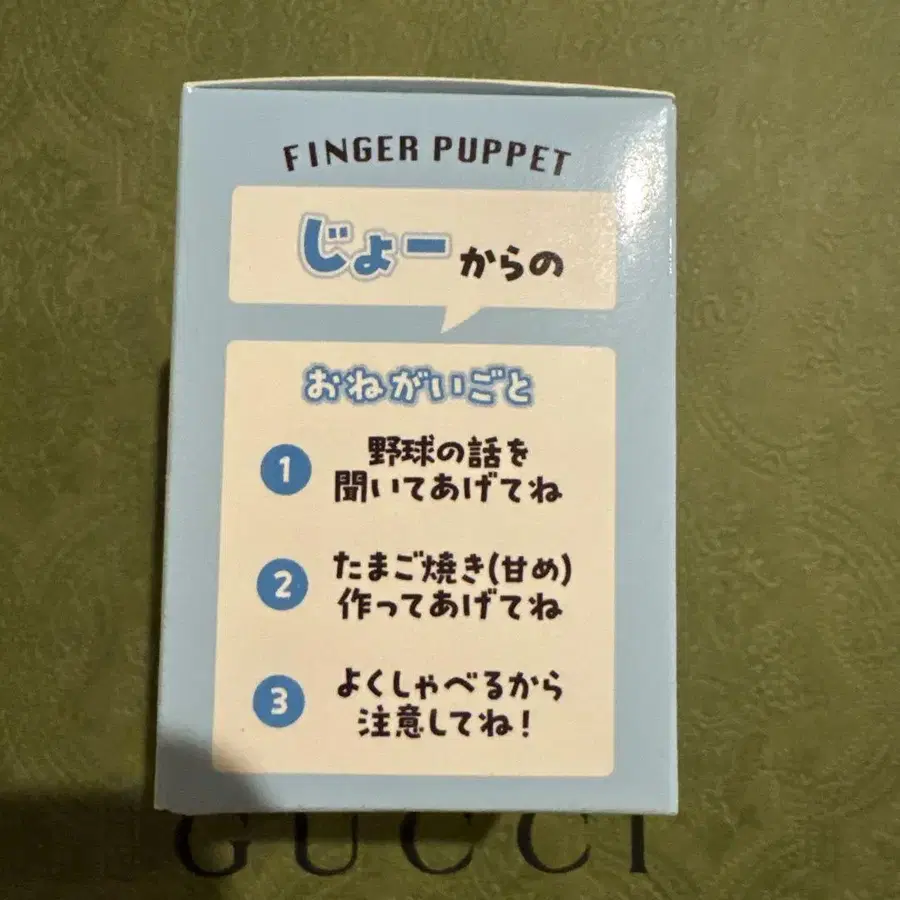 FINGER PUPPET
じょーからの
おねがいごと
1 野球の話を
聞いてあげてね
2 たまご焼き(甘め)
作ってあげてね
3 よくしゃべるから
注意してね!
GUCCI